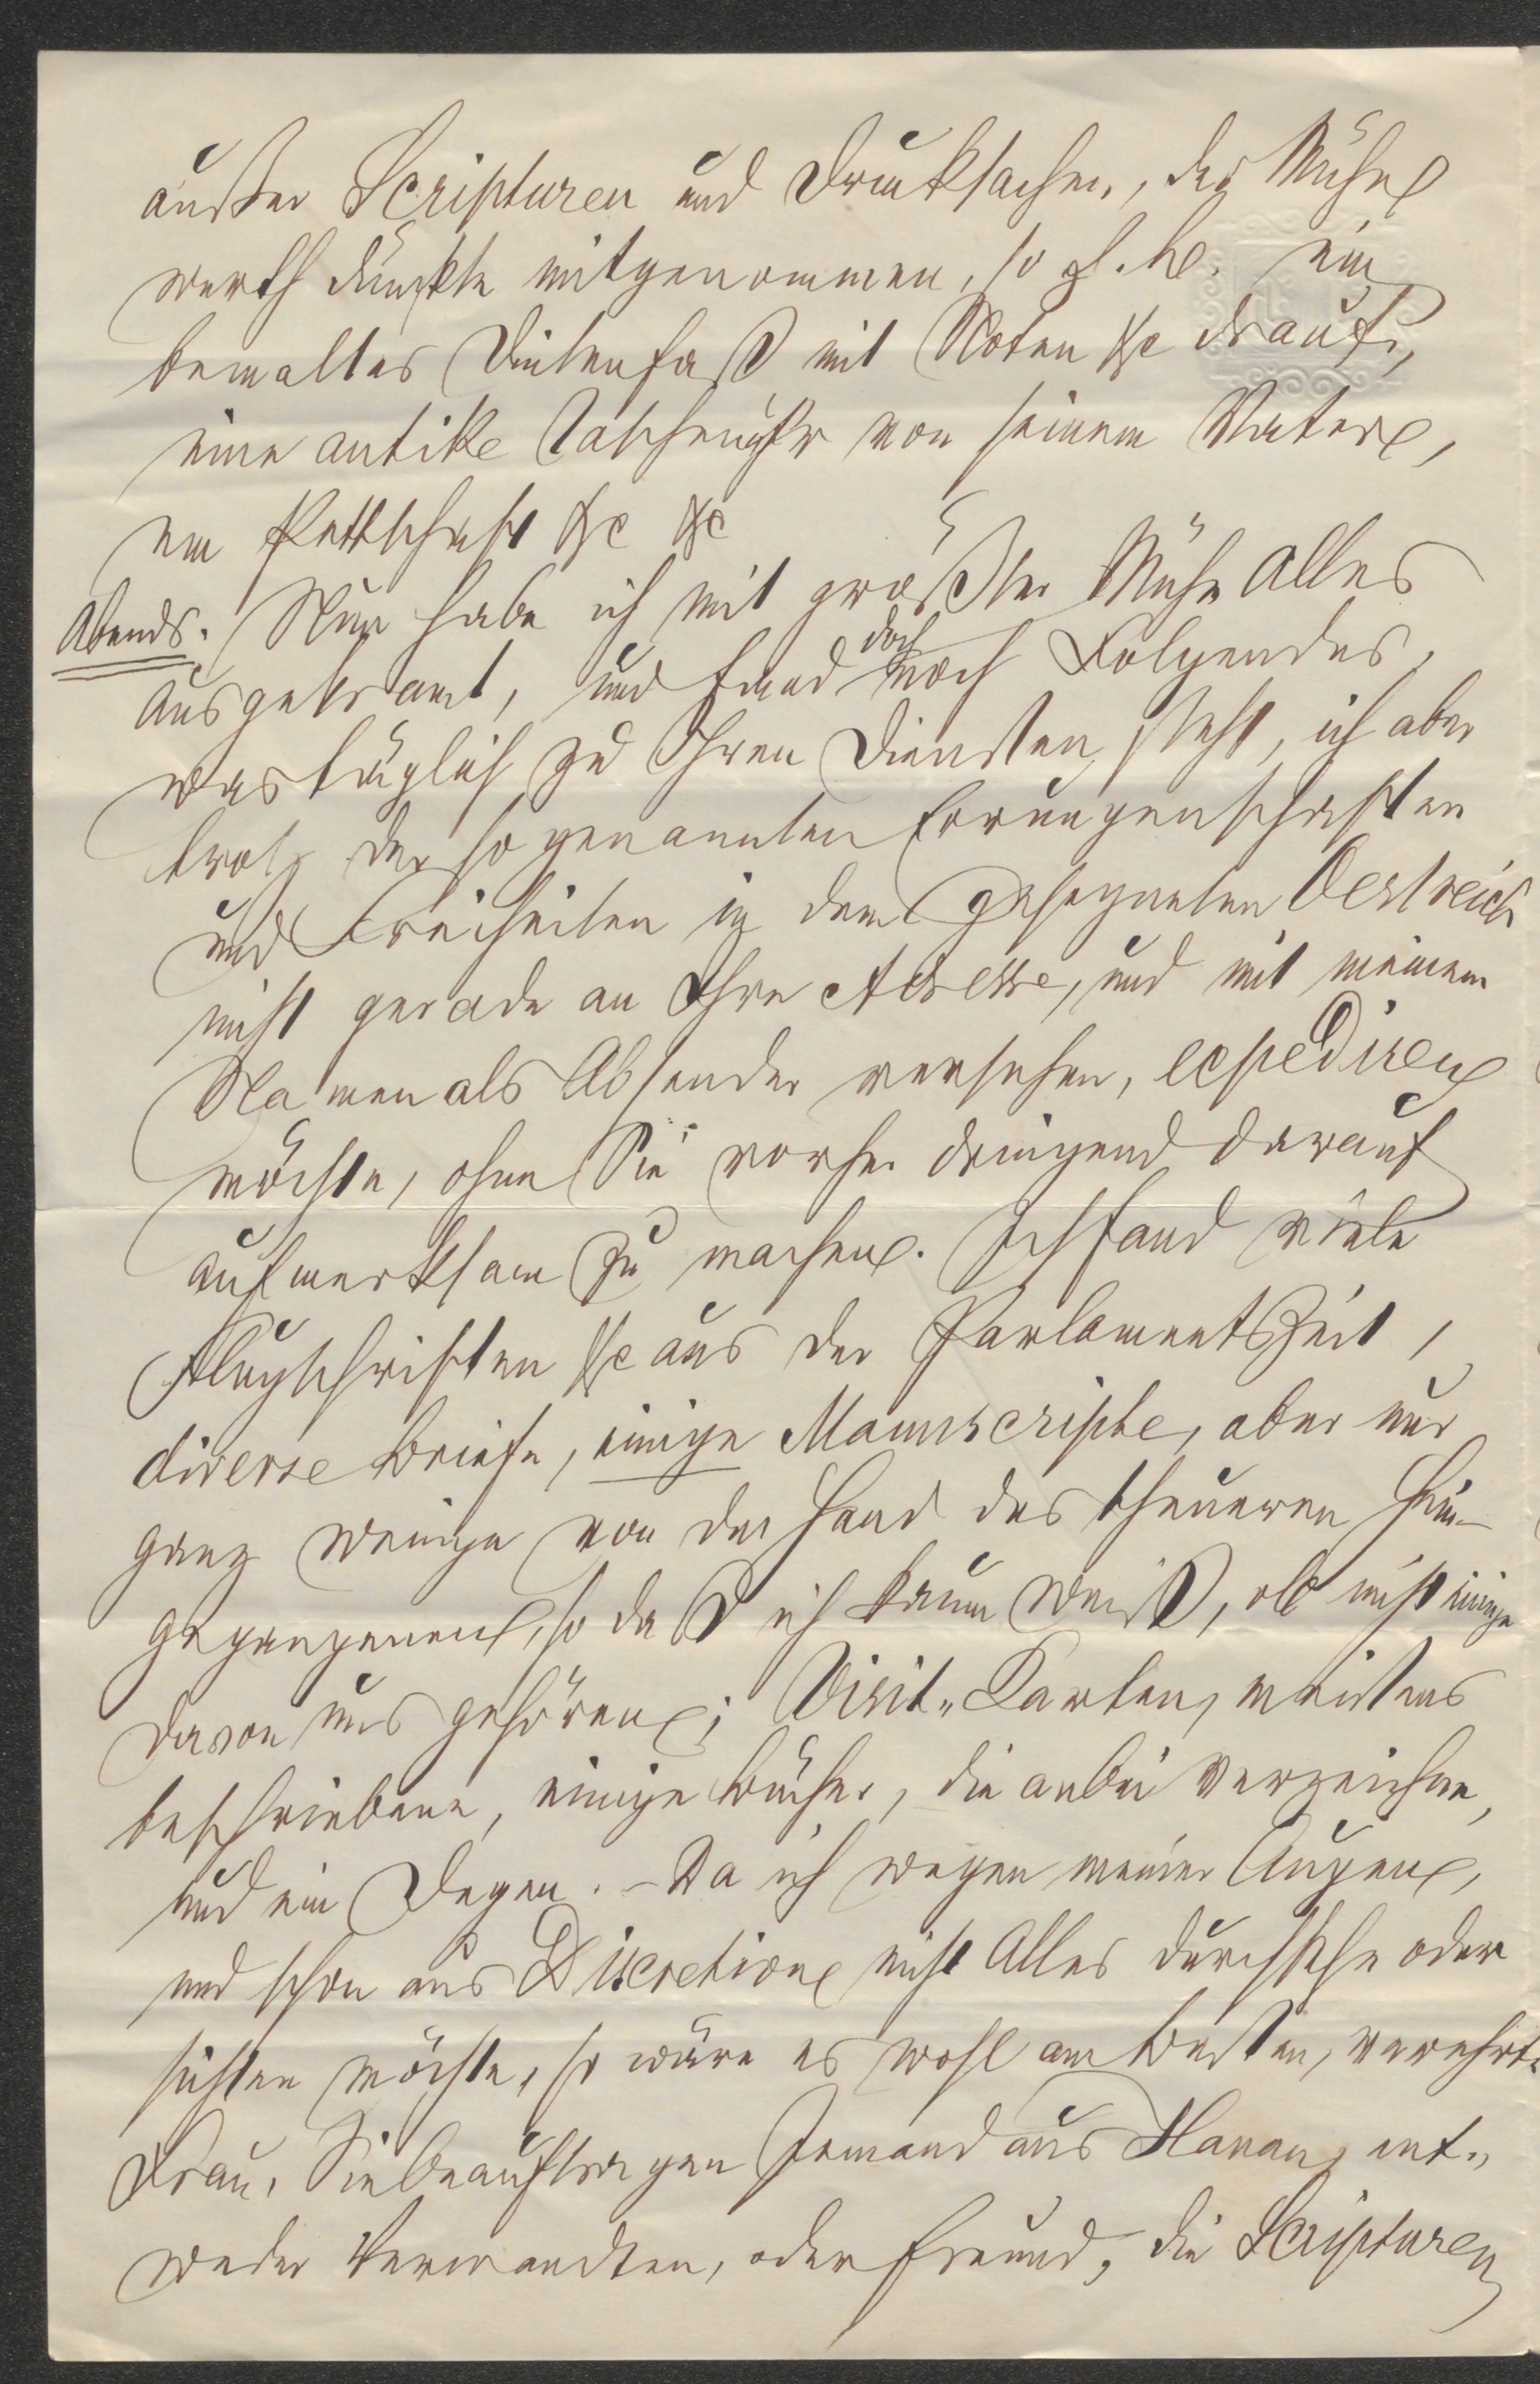 außer Scripturen und Drucksachen, der Mühe
werth dünkte mitgenommen, so z. B. ein
bemaltes Dintenfaß mit Noten &c drauf,
eine antike Taschenuhr von seinem Vater,
ein Pettschaft &c &c
Abends. Nun habe ich mit größter Mühe Alles
ausgekramt, und fand doch noch Folgendes,
was täglich zu Ihren Diensten steht, ich aber
trotz der sogenannten Errungenschaften
und Freiheiten in dem gesegneten Oestreich
nicht gerade an Ihre Adresse, und mit meinem
Namen als Absender versehen, expediren
möchte, ohne Sie vorher dringend darauf
aufmerksam zu machen. Ich fand viele
Flugschriften &c aus der Parlamentszeit,
diverse Briefe, einige Manuscripte, aber nur
ganz wenige von der Hand des theueren Hin-
gegangenen, so daß ich kaum weiß, ob nicht einige
davon uns gehören; Visit-Karten, meistens
beschriebene, einige Bücher, die anbei verzeichne,
und ein Degen. – Da ich wegen meiner Augen,
und schon aus Discretion nicht Alles durchsehe oder
sichten möchte, so wäre es wohl am Besten, verehrte
Frau, Sie beauftragen Jemand aus Hanau, ent-
weder Verwandten, oder Freund, die Scripturen